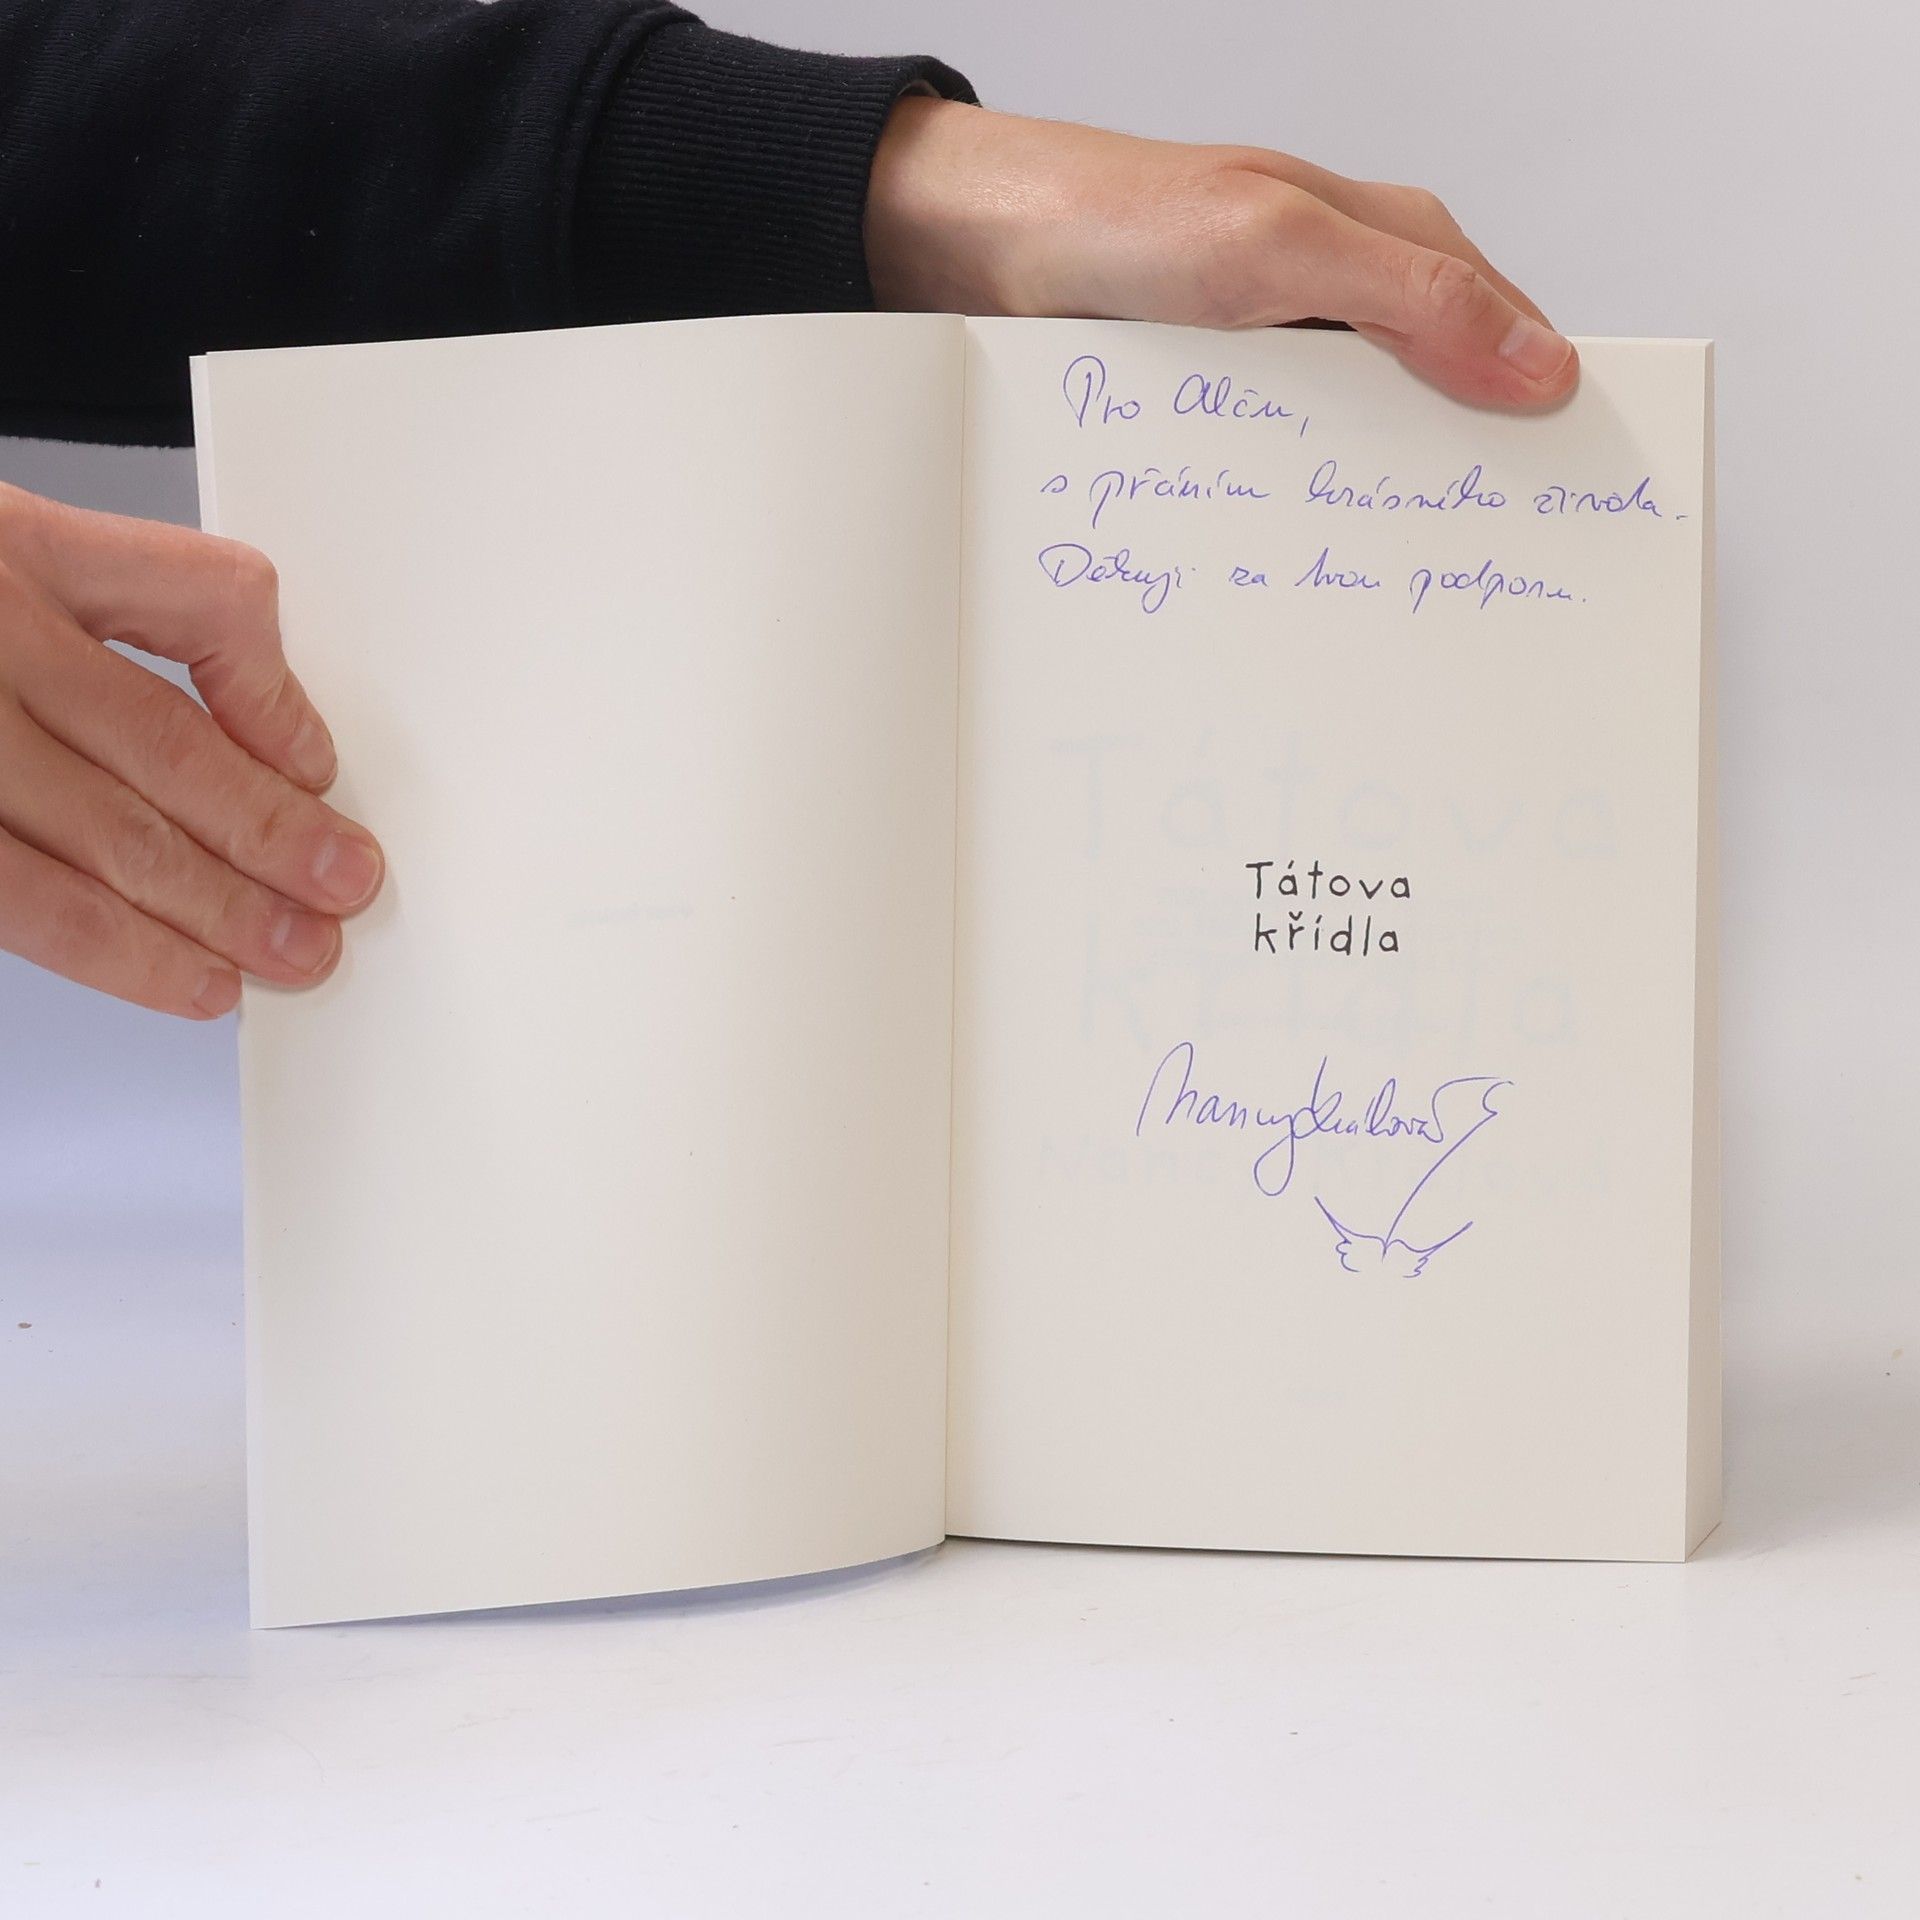 Pro Alču,
s přáním krásného života.
Děkuji za tvou podporu.
Tátova
křídla
Nancy Králová